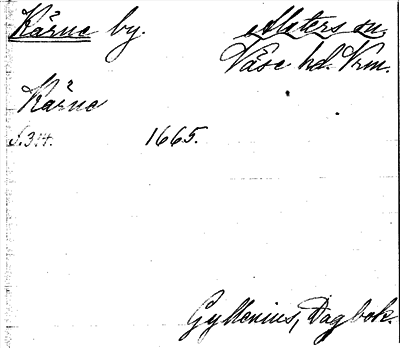 Kärne by. Alsters sn,
Väse hd. Vrm.
Kärne
S. 314. 1665.
Gyllenius, Dagbok.